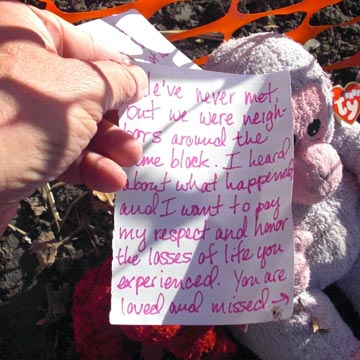 We've never met,
but we were neigh-
bors around the
same block. I heard
about what happened
and I want to pay
my respect and honor
the losses of life you
experienced. You are
loved and missed →
ty